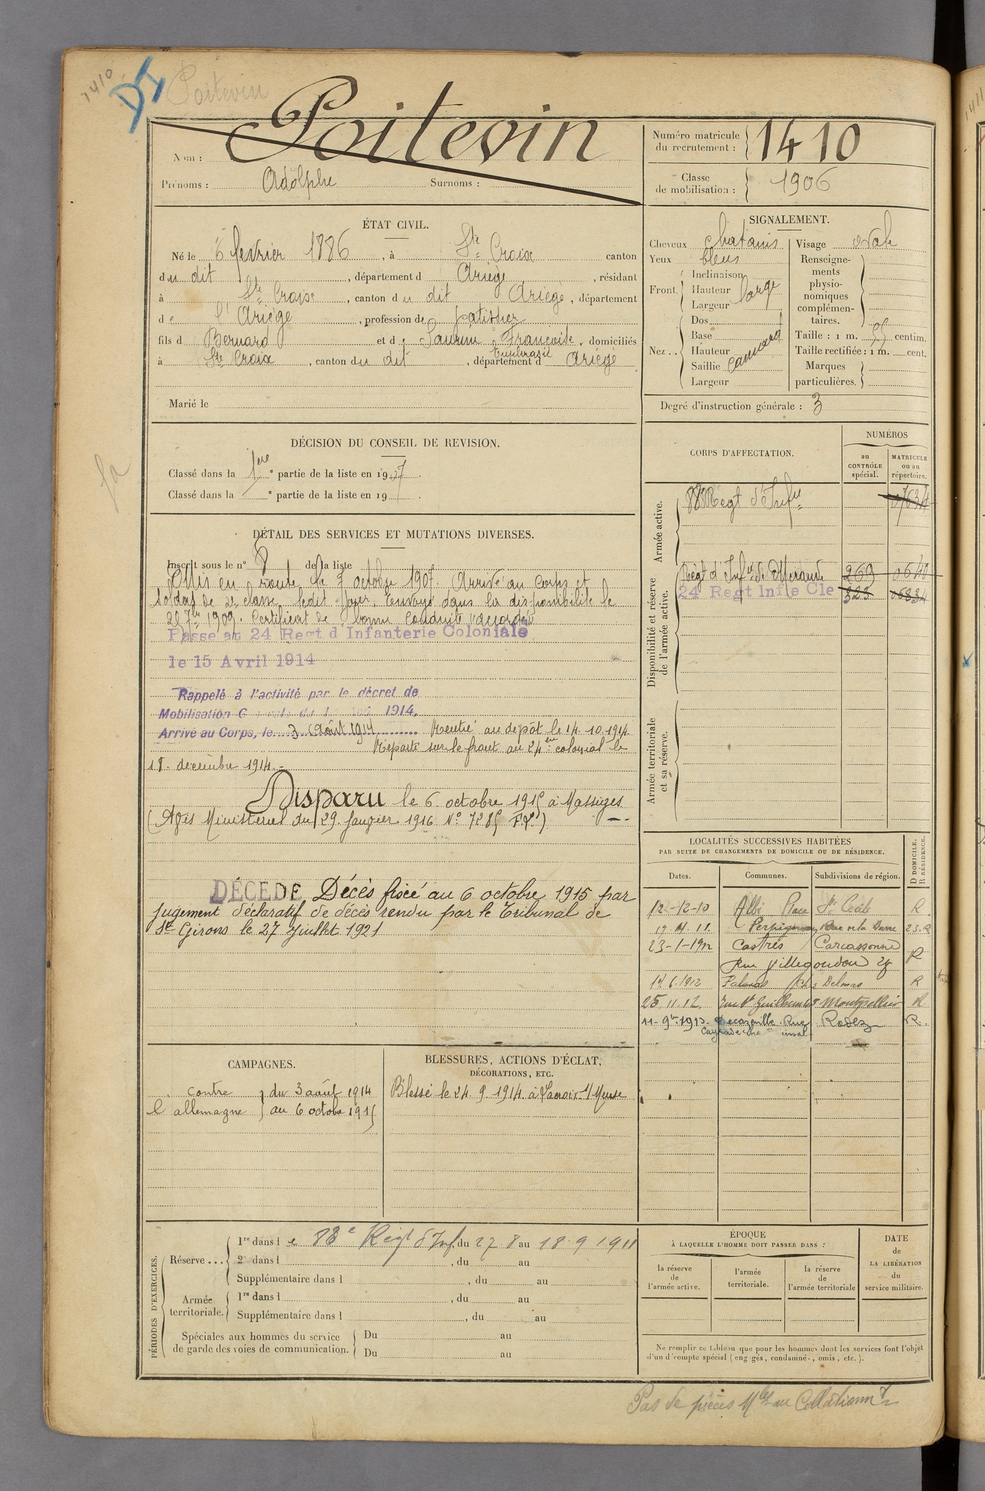 1410
DI
Poitevin
Nom : Poitevin
Prénoms : Adolphe Surnoms :
Numéro matricule du recrutement : 1410
Classe de mobilisation : 1906
ÉTAT CIVIL.
Né le 6 février 1886, à Ste Croix canton
du dit, département d Ariège, résidant
à Ste Croix, canton du dit Ariège, département
de l'Ariège, profession de patissier
fils d Bernard et d Laurine Françoise, domiciliés
à Ste Croix, canton du dit, département d Ariège
Marié le
SIGNALEMENT.
Cheveux chatains
Yeux bleus
Front. Inclinaison
Hauteur large
Largeur
Nez .. Dos
Base
Hauteur camard
Saillie
Largeur
Visage ovale
Renseignements physionomiques complémentaires.
Taille : 1 m. centim.
Taille rectifiée : 1 m. cent.
Marques particulières.
Degré d'instruction générale : 3
DÉCISION DU CONSEIL DE REVISION.
Classé dans la 1ère partie de la liste en 1907.
Classé dans la e partie de la liste en 19
DÉTAIL DES SERVICES ET MUTATIONS DIVERSES.
Inscrit sous le n° 8 de la liste
Mis en route le 7 octobre 1907. Arrivé au corps et
soldat de 2e classe ledit jour. Envoyé dans la disponibilité le
1909. Certificat de bonne conduite accordé
Passé au 24 Regt d'Infanterie Coloniale
le 15 Avril 1914
Rappelé à l'activité par le décret de
Mobilisation G 1914.
Arrivé au Corps, le 3 Août 1914 Rentré au dépôt le 14.10.1914
Reparti sur le front au 24e colonial le
18 décembre 1914.
Disparu le 6 octobre 1915 à Massiges
(Avis Ministériel du 29 Janvier 1916 N° 7285 )
DÉCÉDÉ Décès fixé au 6 octobre 1915 par
jugement déclaratif de décès rendu par le Tribunal de
St Girons le 27 Juillet 1921
CORPS D'AFFECTATION.
NUMÉROS
au CONTRÔLE spécial.
MATRICULE ou au répertoire.
Armée active.
Regt d'Infie
Disponibilité et réserve de l'armée active.
Regt d'Infie de Mirande 269
24 Regt Infie Cle 323
Armée territoriale et sa réserve.
LOCALITÉS SUCCESSIVES HABITÉES
PAR SUITE DE CHANGEMENTS DE DOMICILE OU DE RÉSIDENCE.
Dates. Communes. Subdivisions de région. D DOMICILE. R RÉSIDENCE.
12-12-10 Albi Place Ste Cécile R
Perpignan
23-1-1912 Castres Carcassonne R
Rue Villegoudou
Palavas R
25.11.12 rue St Guilhem Montpellier R
11-9bre 1913 Decazeville Rue Rodez R.
CAMPAGNES.
contre l'allemagne du 3 août 1914
au 6 octobre 1915
BLESSURES, ACTIONS D'ÉCLAT,
DÉCORATIONS, ETC.
Blessé le 24.9.1914 à s/Meuse
PÉRIODES D'EXERCICES.
Réserve ... 1re dans le 83e Régt d'Inf, du 27 8 au 18 9 1911
2e dans l , du au
Supplémentaire dans l , du au
Armée territoriale. 1re dans l , du au
Supplémentaire dans l , du au
Spéciales aux hommes du service de garde des voies de communication. Du au
Du au
ÉPOQUE
À LAQUELLE L'HOMME DOIT PASSER DANS :
la réserve de l'armée active.
l'armée territoriale.
la réserve de l'armée territoriale
DATE
de
LA LIBÉRATION
du
service militaire.
Ne remplir ce tableau que pour les hommes dont les services font l'objet
d'un décompte spécial (engagés, condamnés, omis, etc.).
Pas de pièces Mles au